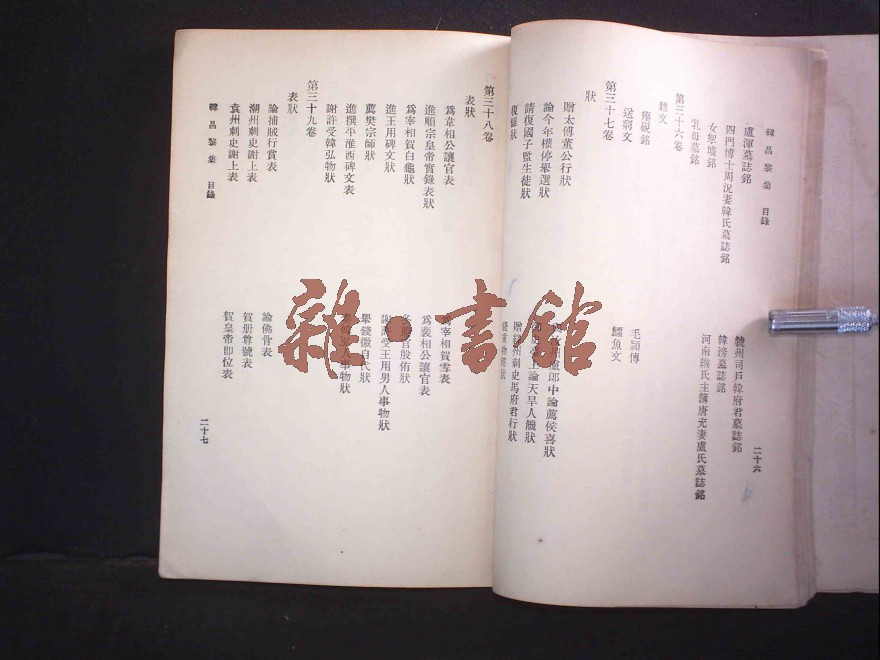 韓昌黎集 目錄
二十六
盧渾墓誌銘
虢州司戶韓府君墓誌銘
四門博士周況妻韓氏墓誌銘
韓滂墓誌銘
女挐壙銘
河南緱氏主簿唐充妻盧氏墓誌銘
乳母墓銘
第三十六卷
雜文
瘞硯銘
毛穎傳
送窮文
鱷魚文
第三十七卷
狀
贈太傅董公行狀
盧郎中論薦侯喜狀
論今年權停舉選狀
上論天旱人饑狀
請復國子監生徒狀
贈絳州刺史馬府君行狀
復讎狀
錢重物輕狀
第三十八卷
表狀
爲韋相公讓官表
爲宰相賀雪表
進順宗皇帝實錄表狀
爲裴相公讓官表
爲宰相賀白龜狀
官殷侑狀
進王用碑文狀
謝許受王用男人事物狀
薦樊宗師狀
舉錢徽自代狀
進撰平淮西碑文表
韓弘人事物狀
謝許受韓弘物狀
第三十九卷
表狀
論捕賊行賞表
論佛骨表
潮州刺史謝上表
賀册尊號表
袁州刺史謝上表
賀皇帝卽位表
韓昌黎集 目錄
二十七
雜·書館